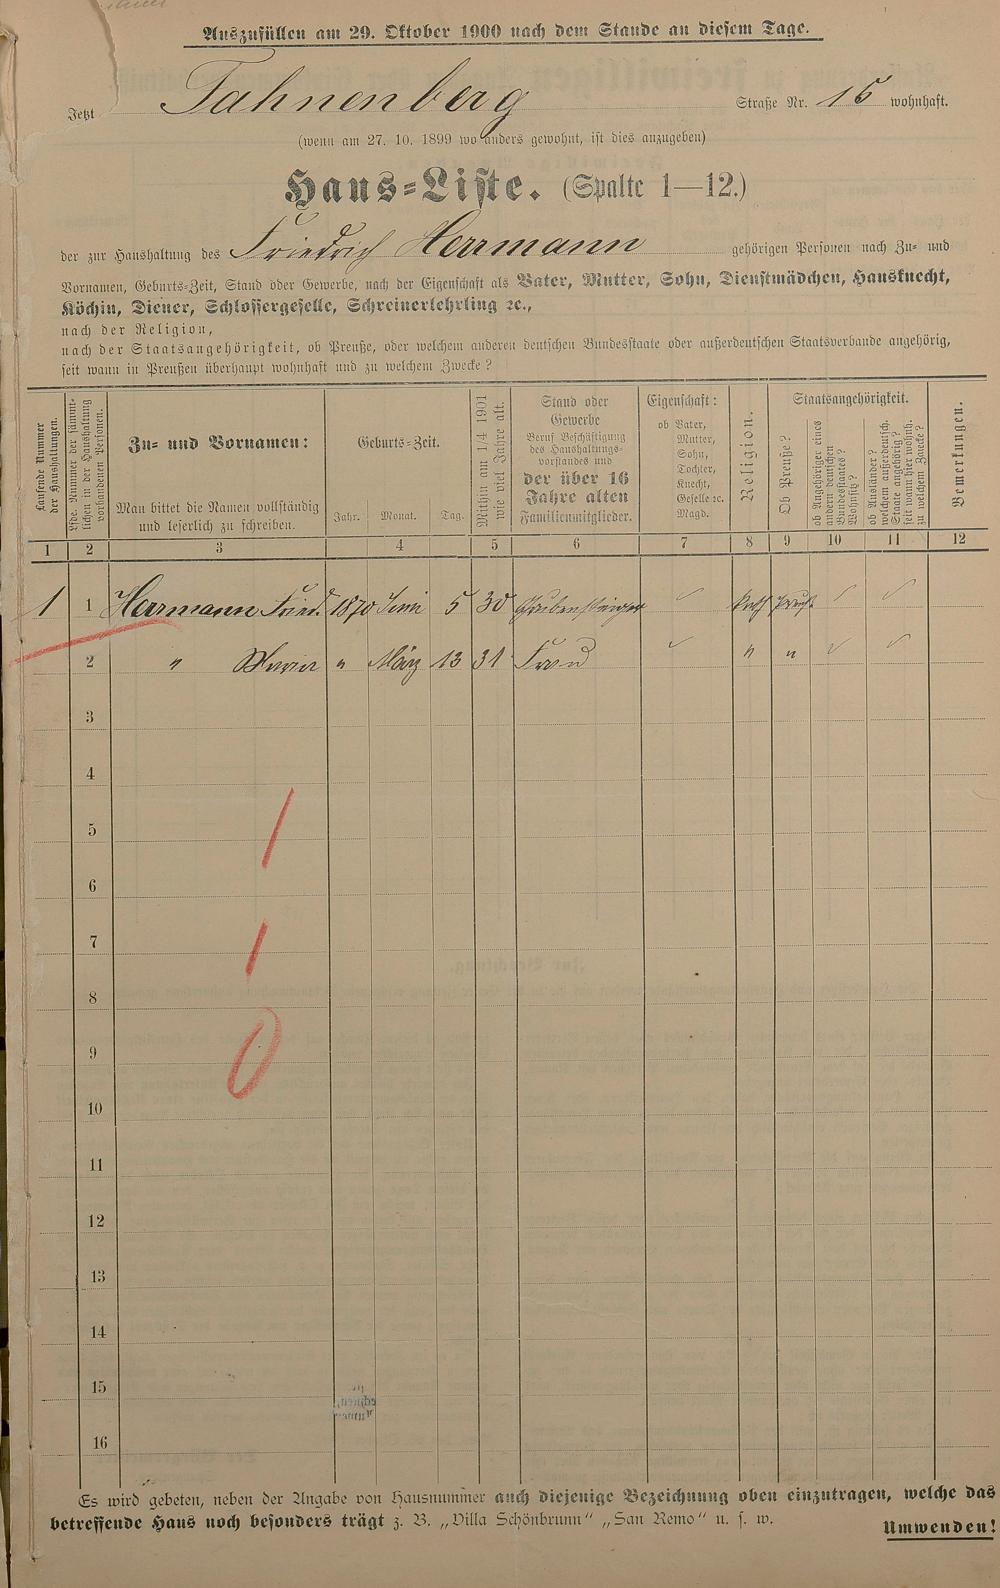 Auszufüllen am 29. Oktober 1900 nach dem Stande an diesem Tage.
Jetzt Fahnenberg Straße Nr. 15 wohnhaft.
(wenn am 27. 10. 1899 wo anders gewohnt, ist dies anzugeben)
Haus=Liste. (Spalte 1—12.)
der zur Haushaltung des Friedrich Herrmann gehörigen Personen nach Zu= und
Vornamen, Geburts=Zeit, Stand oder Gewerbe, nach der Eigenschaft als Vater, Mutter, Sohn, Dienstmädchen, Hausknecht,
Köchin, Diener, Schlossergeselle, Schreinerlehrling ꝛc.,
nach der Religion,
nach der Staatsangehörigkeit, ob Preuße, oder welchem anderen deutschen Bundesstaate oder außerdeutschen Staatsverbande angehörig,
seit wann in Preußen überhaupt wohnhaft und zu welchem Zwecke?
Laufende Nummer
der Haushaltungen.
Lfde. Nummer der sämmt=
lichen in der Haushaltung
vorhandenen Personen.
Zu= und Vornamen:
Man bittet die Namen vollständig
und leserlich zu schreiben.
Geburts=Zeit.
Jahr. Monat. Tag.
Mithin am 1/4 1901
wie viel Jahre alt.
Stand oder
Gewerbe
Beruf Beschäftigung
des Haushaltungs=
vorstandes und
der über 16
Jahre alten
Familienmitglieder.
Eigenschaft:
ob Vater,
Mutter,
Sohn,
Tochter,
Knecht,
Geselle ꝛc.
Magd.
Religion.
Staatsangehörigkeit.
Ob Preuße?
ob Angehöriger eines
andern deutschen
Bundesstaates?
Wohnsitz?
ob Ausländer?
welchem außerdeutsch.
Staate angehörig?
seit wann hier wohnh.
zu welchem Zwecke?
Bemerkungen.
1 2 3 4 5 6 7 8 9 10 11 12
1 1 Herrmann Fried. 1870 Juni 5 30 Kath Preuß
2 " Maria " März 13 31 Frau " "
3
4
5
6
7
8
9
10
11
12
13
14
15
16
1
1
0
Es wird gebeten, neben der Angabe von Hausnummer auch diejenige Bezeichnung oben einzutragen, welche das
betreffende Haus noch besonders trägt z. B. „Villa Schönbrunn" „San Remo" u. s. w.
Umwenden!